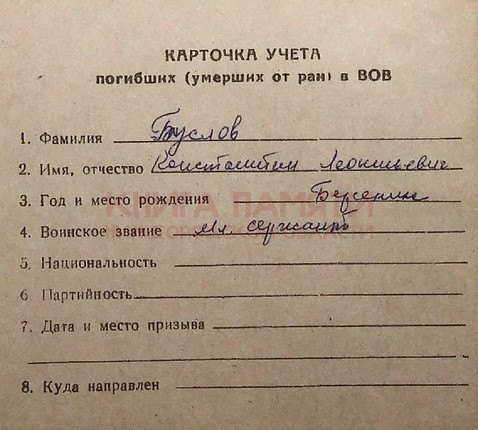 КАРТОЧКА УЧЕТА
погибших (умерших от ран) в ВОВ
1. Фамилия Буслов
2. Имя, отчество Константин Леонтьевич
3. Год и место рождения
КНИГА ПАМЯТИ
4. Воинское звание мл. сержант
5. Национальность
6 Партийность
7. Дата и место призыва
8. Куда направлен